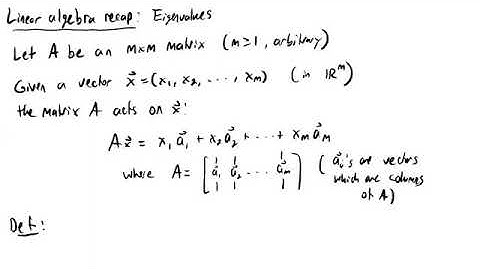 Linear algebra recap: Eigenvalues
Let A be an m×m matrix (m≥1, arbitrary)
Given a vector x⃗=(x₁, x₂, ..., xₘ) (in ℝᵐ)
the matrix A acts on x⃗:
Ax⃗ = x₁a⃗₁ + x₂a⃗₂ + ... + xₘa⃗ₘ
where A = [a⃗₁ a⃗₂ ... a⃗ₘ] (a⃗ᵢ's are vectors
which are columns
of A)
Def: